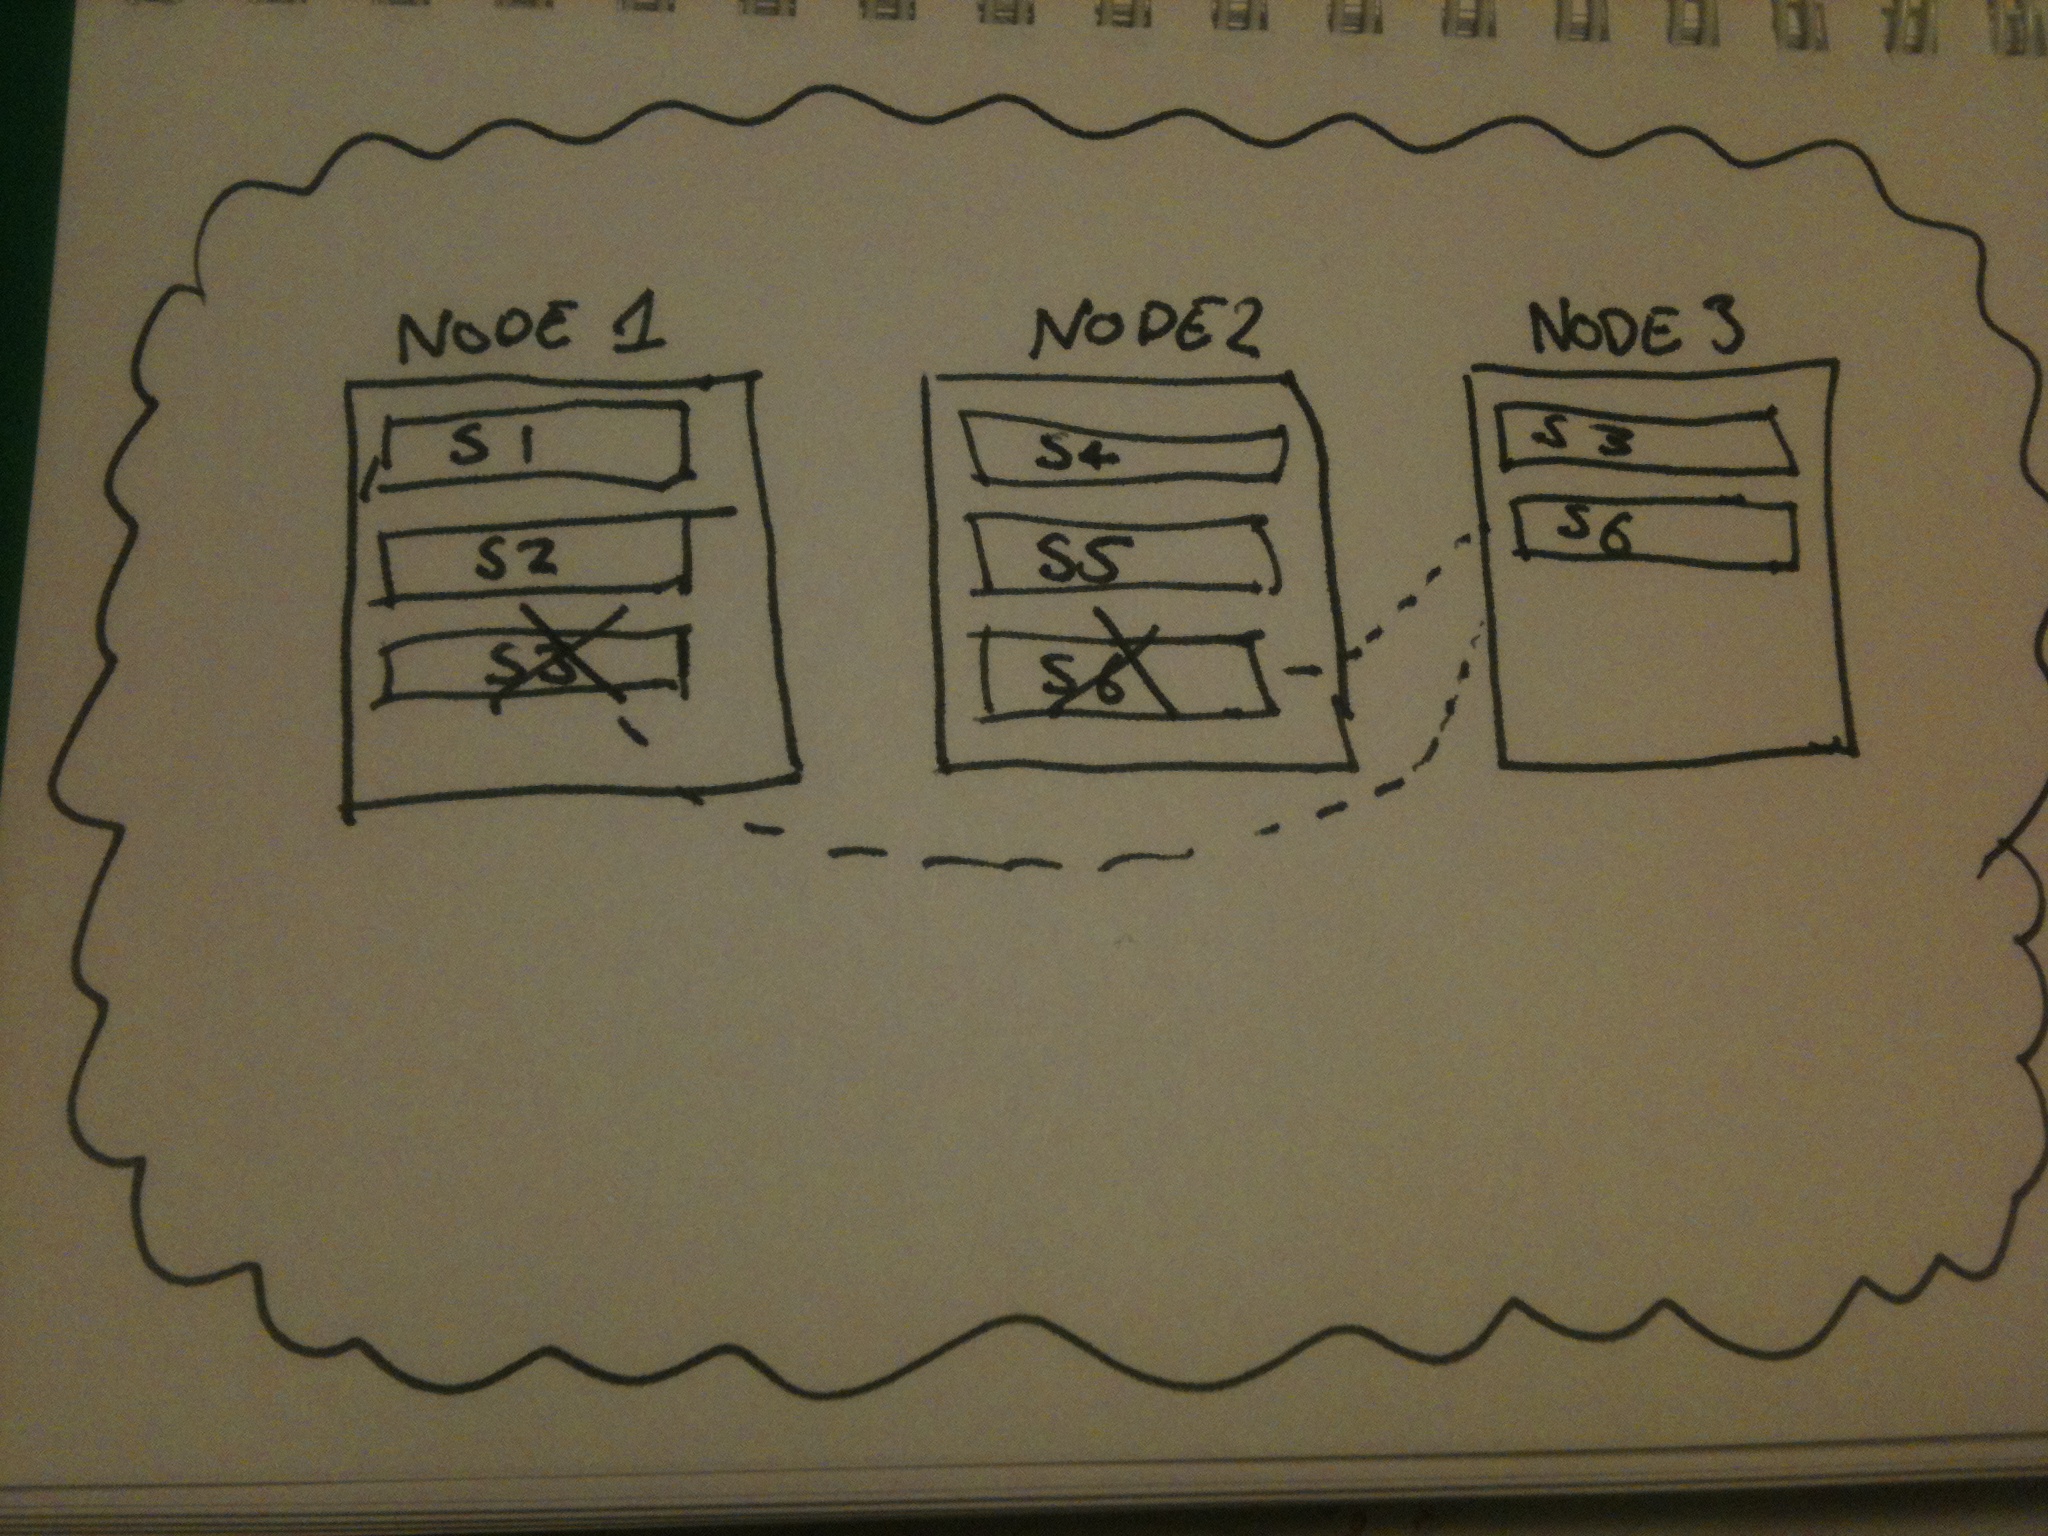 NODE 1
S1
S2
S3
NODE2
S4
S5
S6
NODE 3
S3
S6